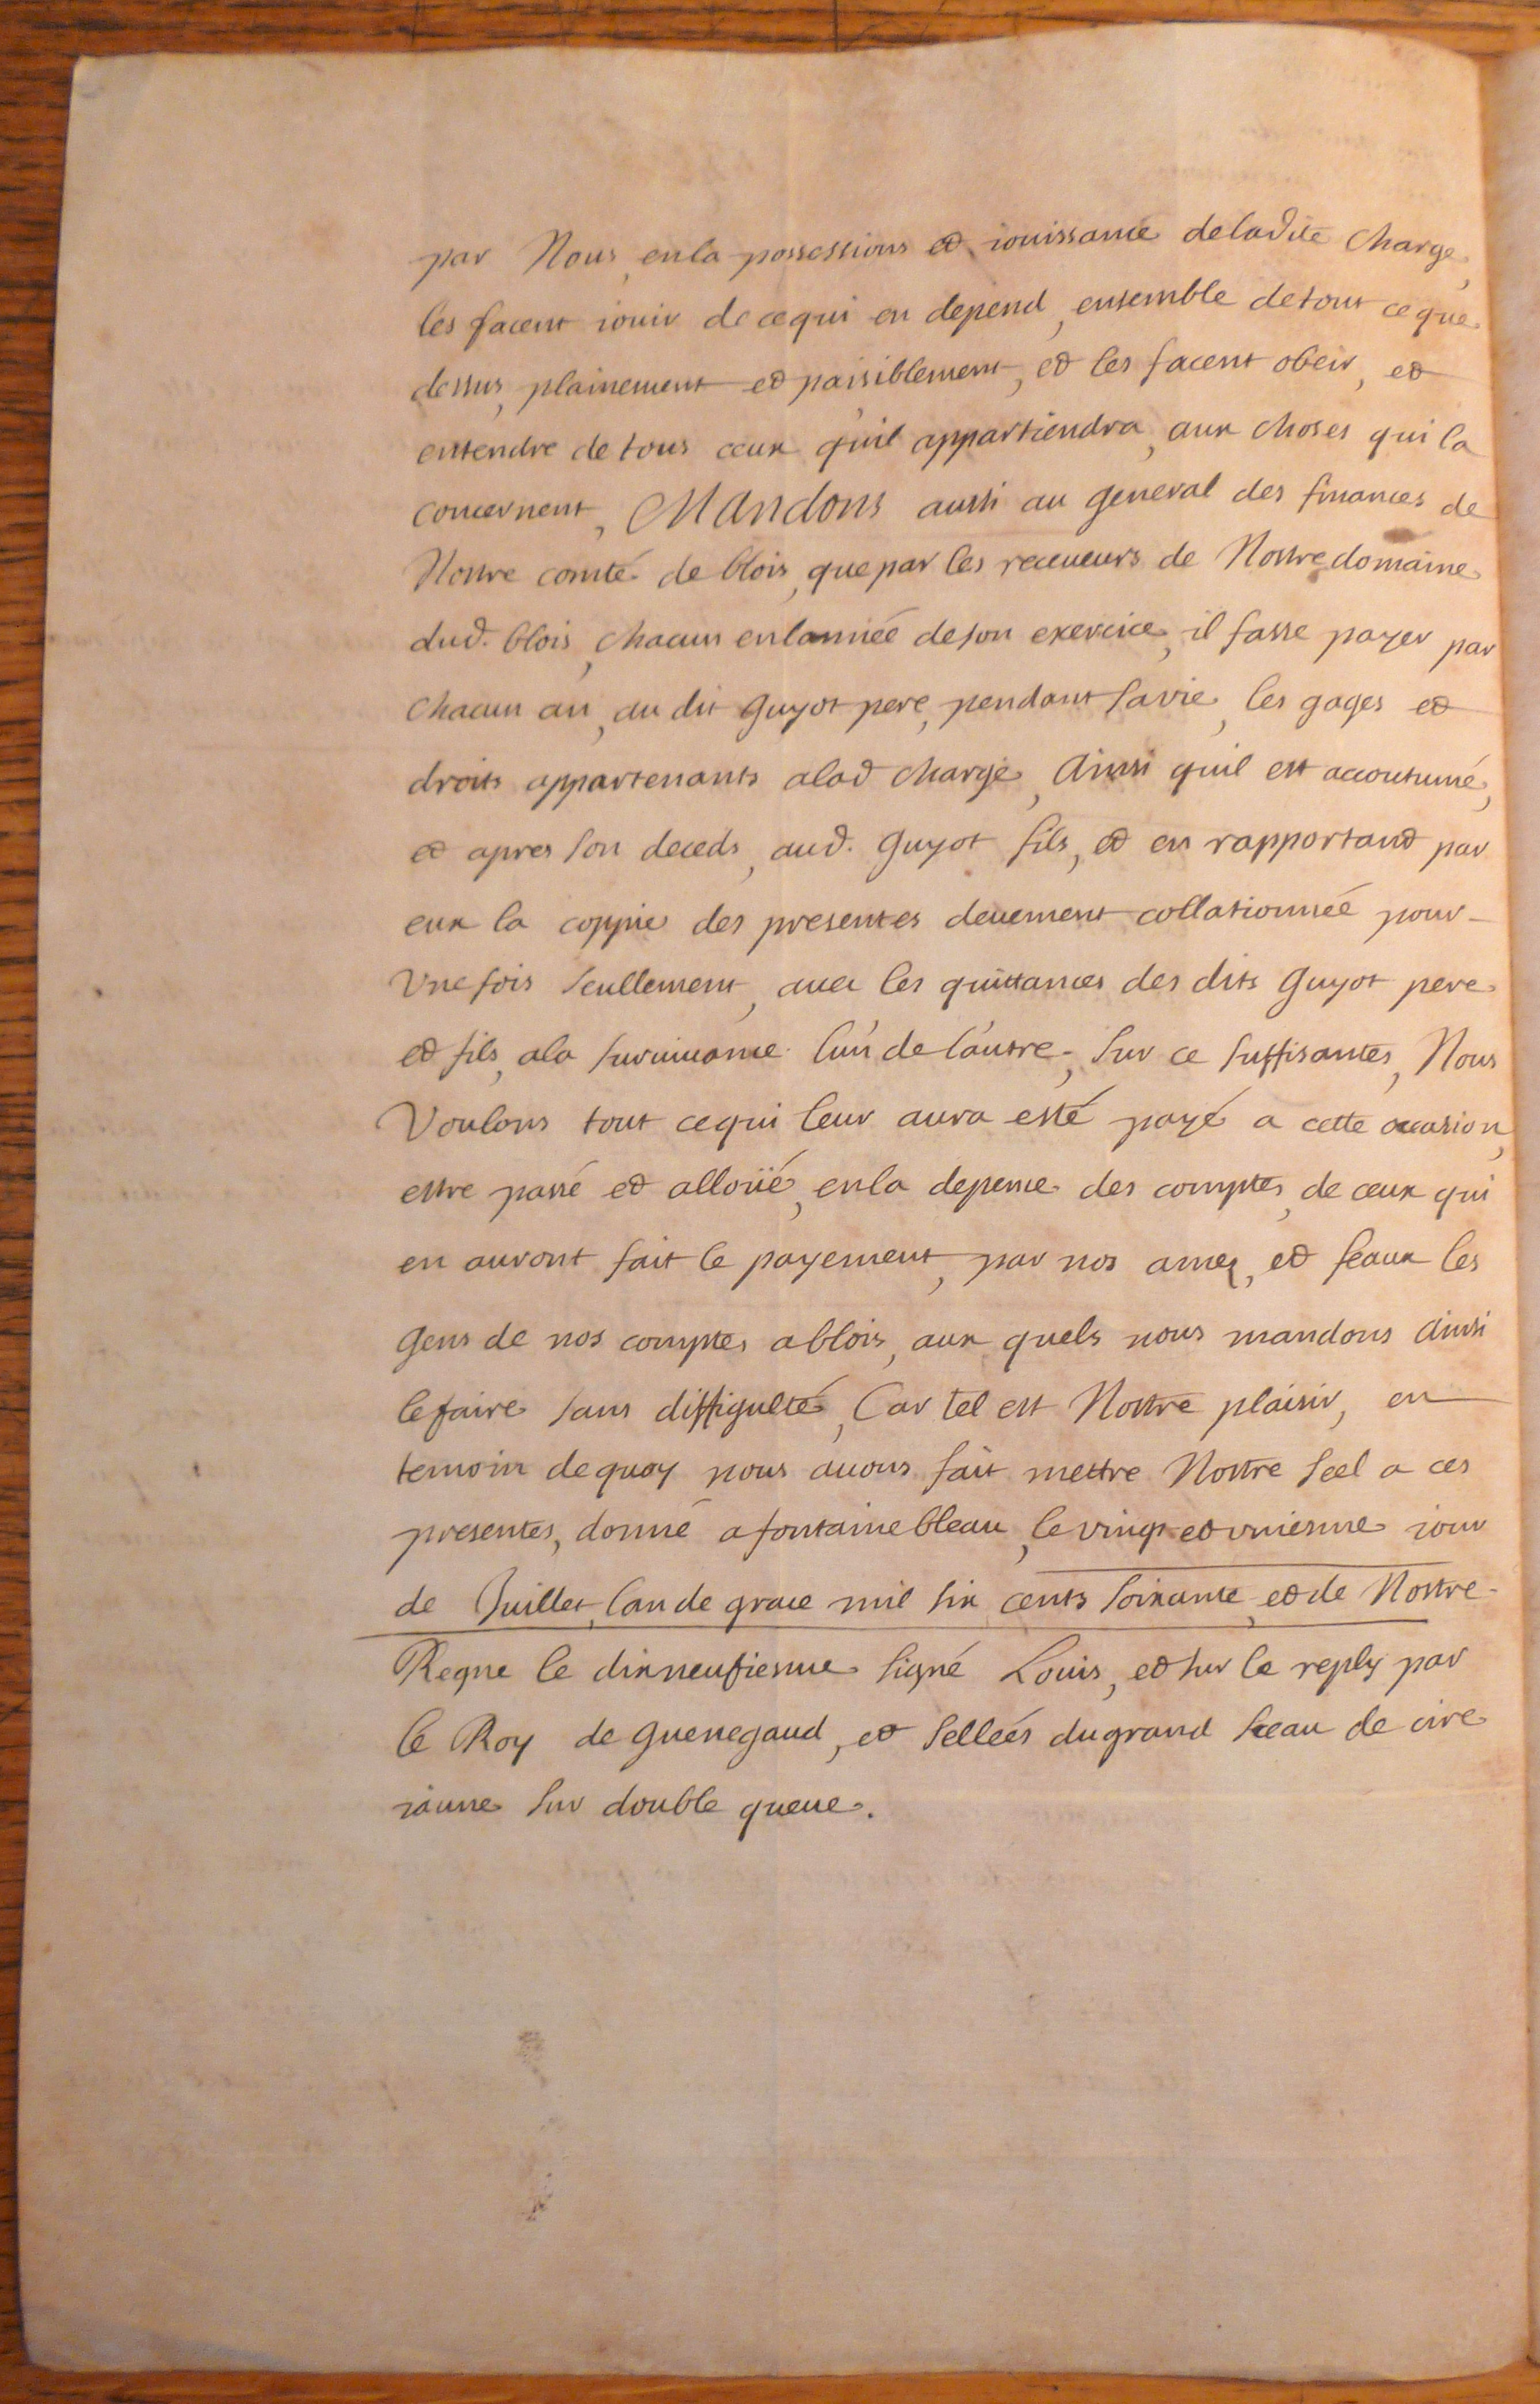 par Nous, en la possessions et iouissance deladite charge,
les facent iouir de cequi en depend, ensemble detout ce que
dessus, plainement et paisiblement, et les facent obeir, et
entendre de tous ceux quil appartiendra, aux choses qui la
concernent, Mandons aussi au general des finances de
Nostre comté de blois, que par les receueurs de Nostre domaine
dud. blois, chacun en lannéé de son exercice, il fasse payer par
chacun an, au dit guyot pere, pendant sa vie, les gages et
droits appartenants a lad charge, Ainsi quil est accoutumé,
et apres son deceds, aud. guyot fils, et en rapportant par
eux la coppie des presentes deuement collationnéé pour
Vne fois seullement, auec les quittances des dits guyot pere
et fils, ala suruiuance lun de l'autre, sur ce suffisantes, Nous
Voulons tout cequi leur aura esté payé a cette occasion,
estre passé et alloüé, en la depence des comptes, de ceux qui
en auront fait le payement, par nos amez, et feaux les
gens de nos comptes a blois, aux quels nous mandons ainsi
lefaire sans diffigulté, Car tel est Nostre plaisir, en
temoin dequoy nous auons fait mettre Nostre seel a ces
presentes, donné a fontainebleau, le vingt et vniesme iour
de Juillet, lan de grace mil six cents soixante, et de Nostre
Regne le dixneufiesme signé Louis, et sur le reply par
le Roy de guenegaud, et selléés du grand sceau de cire
iaune sur double queue.